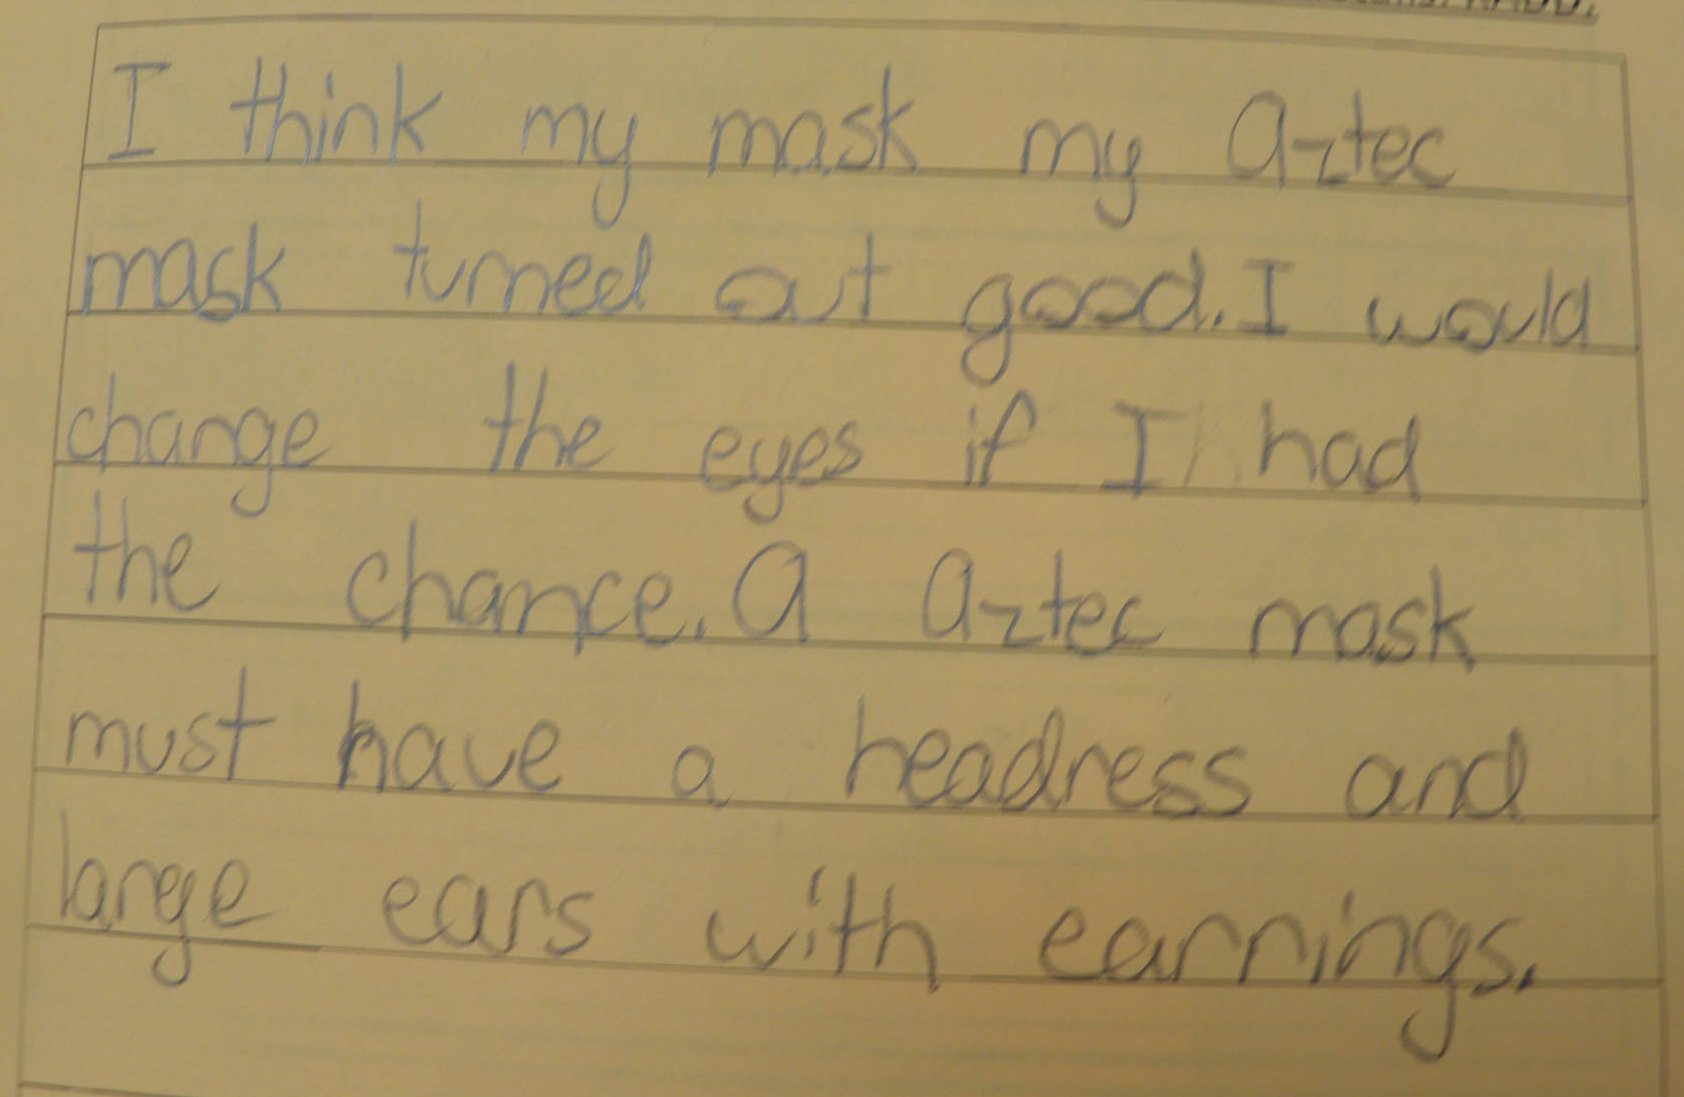 I think my mask my Aztec
mask turned out good. I would
change the eyes if I had
the chance. A Aztec mask
must have a headress and
large ears with earrings.